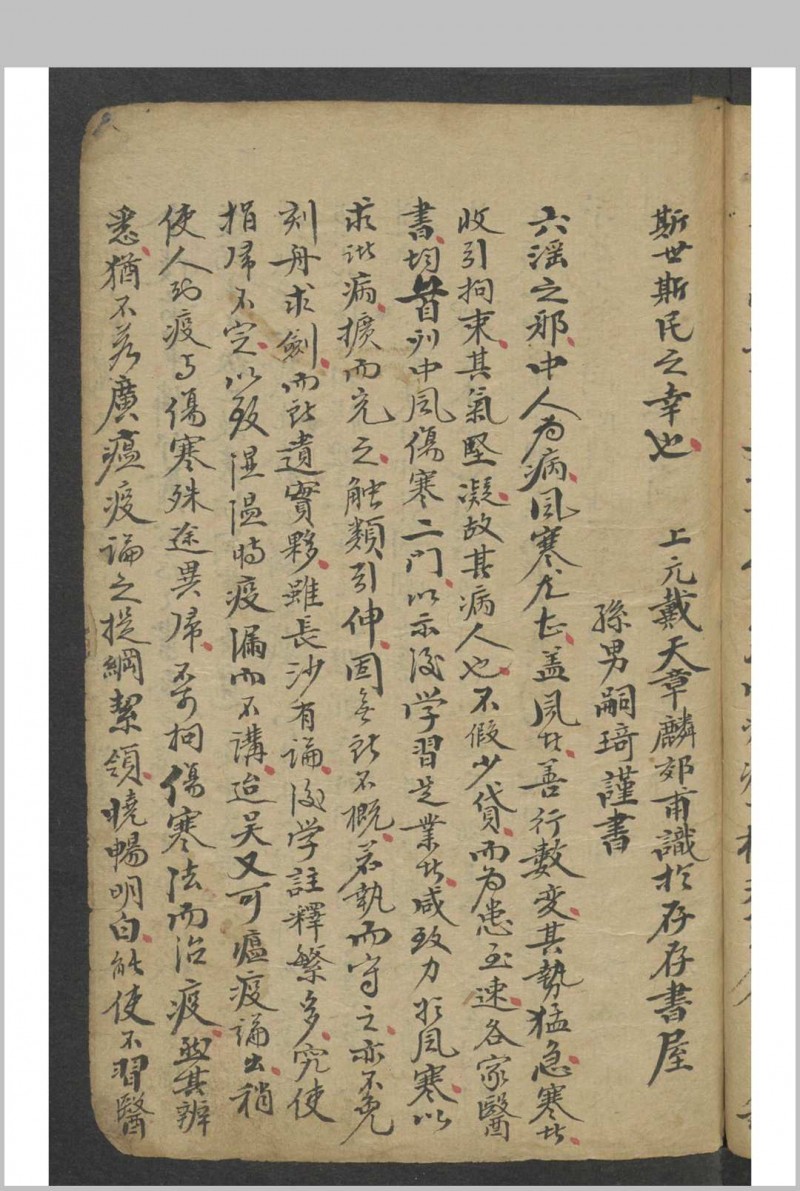 斯世斯民之幸也 上元戴天章麟郊甫識於存存書屋
孫男嗣琦謹書
六淫之邪中人為病風寒尤甚蓋風性善行數変其勢猛急寒性
收引拘束其氣堅凝故其病人也不假少貸而為患至速各家醫
書均首列中風傷寒二門以示後学習是業者咸致力於風寒以
求諸病擴而充之觸類引伸固無所不概若執而守之亦不免
刻舟求劍而所遺實夥雖長沙有論後学註釋繁多究使
指歸不定以致濕温時疫漏而不講迨吴又可瘟疫論出稍
使人知疫与傷寒殊途異歸不可拘傷寒法而治疫然其辨
悉猶不若廣瘟疫論之提綱絜領曉暢明白能使不習醫